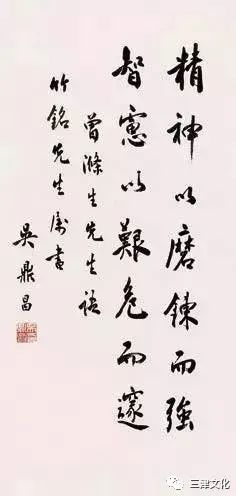 精神以磨鍊而強
智慮以艱危而邃
曾滌生先生語
竹銘先生屬書
吳鼎昌
三津文化